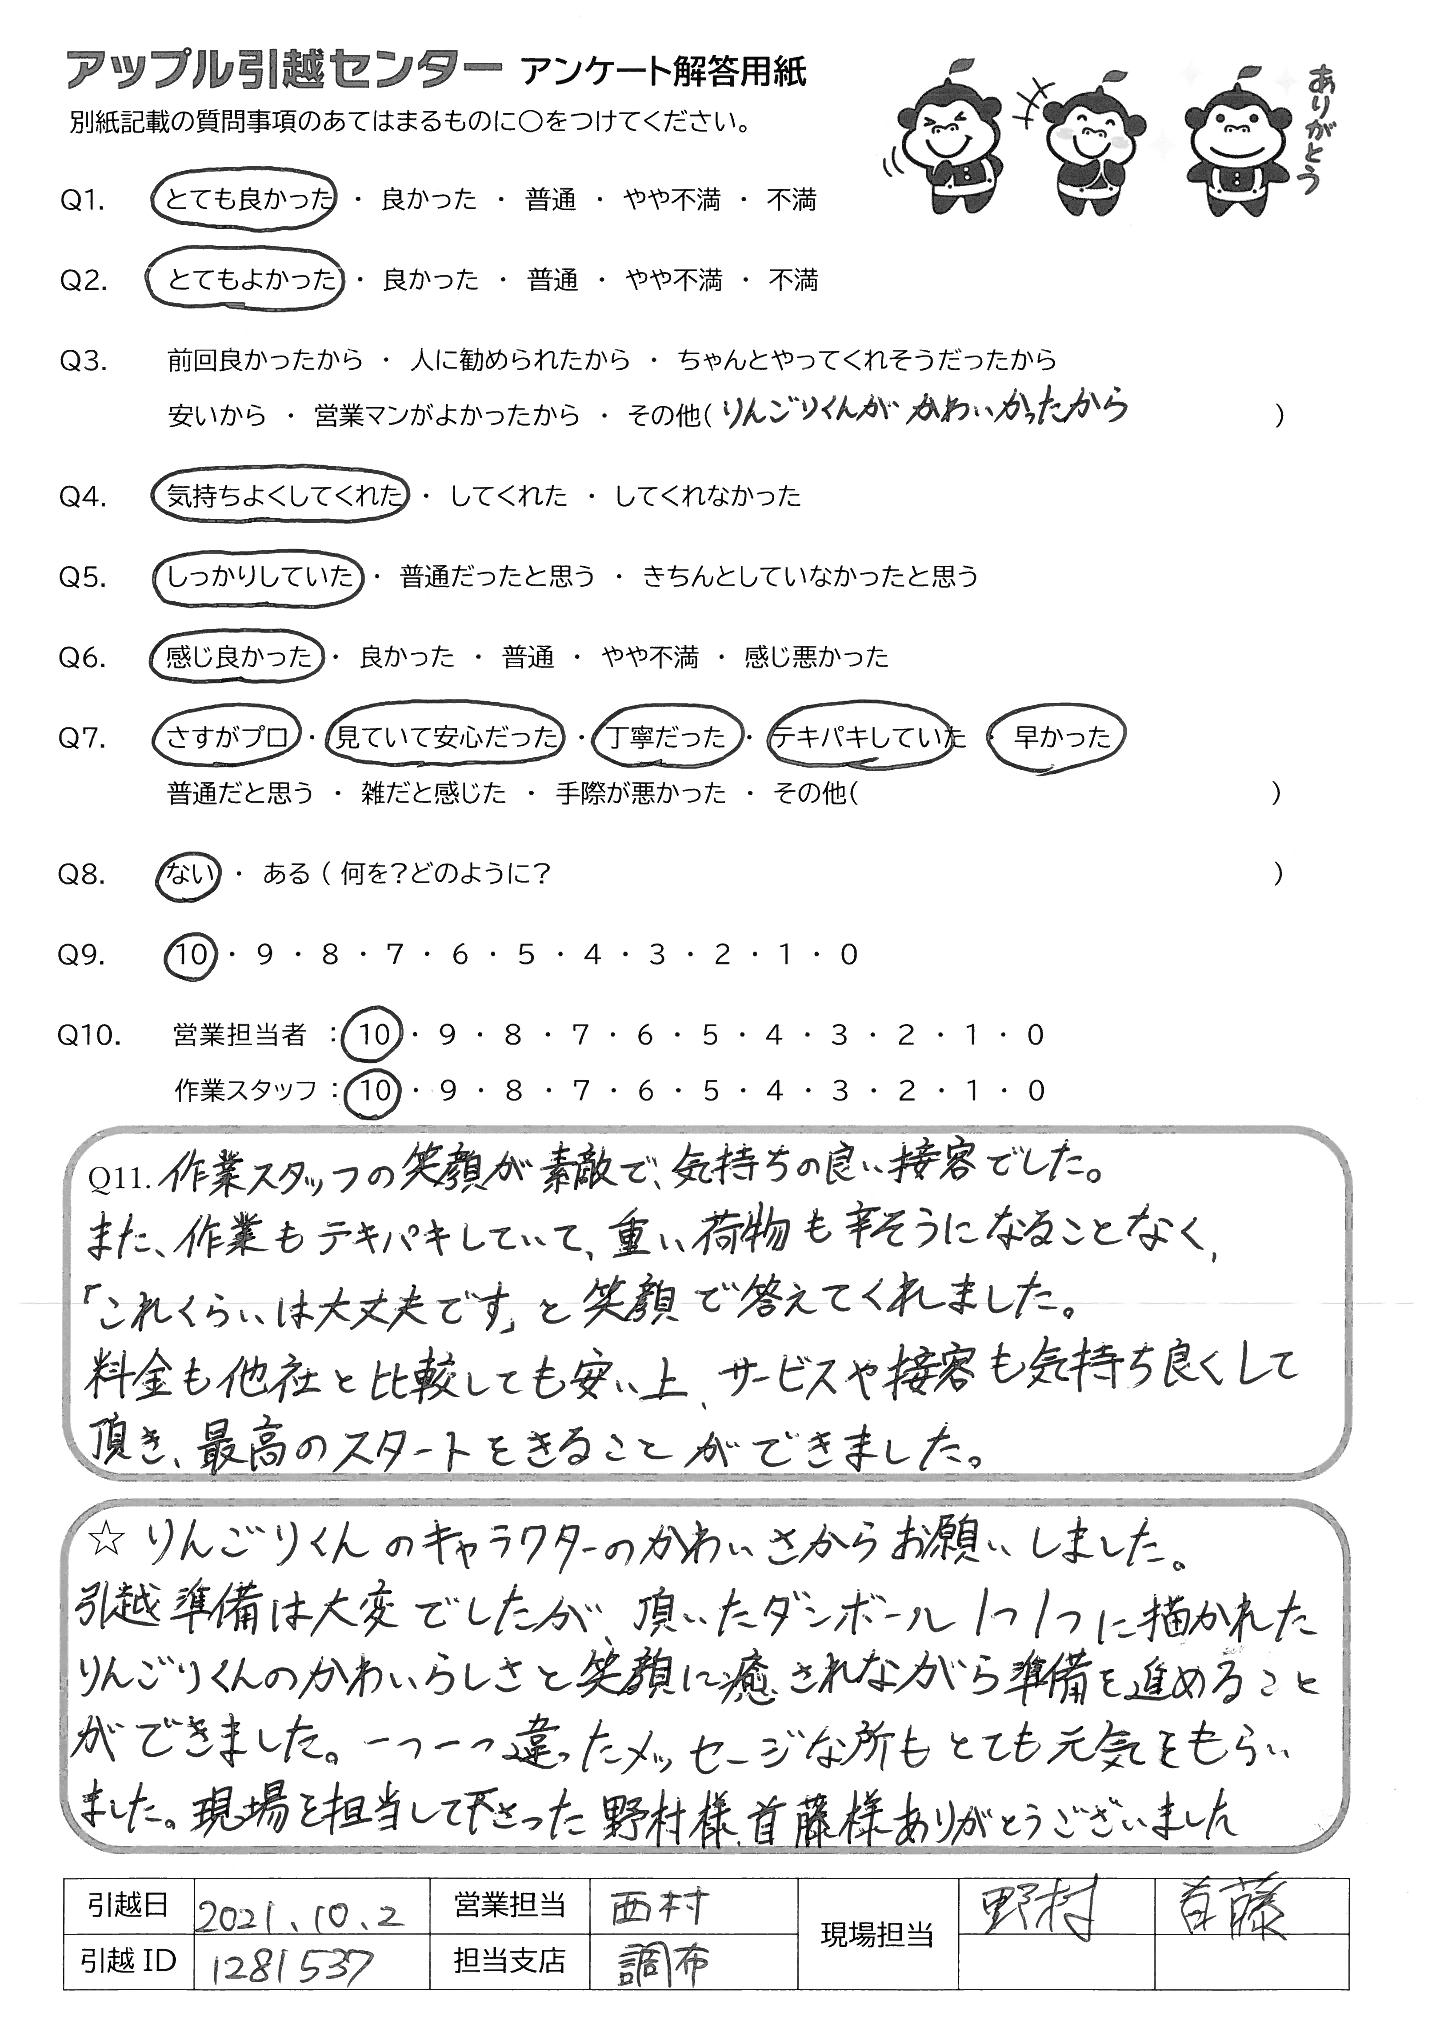 アップル引越センター アンケート解答用紙
別紙記載の質問事項のあてはまるものに○をつけてください。
ありがとう
Q1. とても良かった ・ 良かった ・ 普通 ・ やや不満 ・ 不満
Q2. とてもよかった ・ 良かった ・ 普通 ・ やや不満 ・ 不満
Q3. 前回良かったから ・ 人に勧められたから ・ ちゃんとやってくれそうだったから
安いから ・ 営業マンがよかったから ・ その他( りんごりくんが かわいかったから )
Q4. 気持ちよくしてくれた ・ してくれた ・ してくれなかった
Q5. しっかりしていた ・ 普通だったと思う ・ きちんとしていなかったと思う
Q6. 感じ良かった ・ 良かった ・ 普通 ・ やや不満 ・ 感じ悪かった
Q7. さすがプロ ・ 見ていて安心だった ・ 丁寧だった ・ テキパキしていた ・ 早かった
普通だと思う ・ 雑だと感じた ・ 手際が悪かった ・ その他( )
Q8. ない ・ ある ( 何を?どのように? )
Q9. 10 ・ 9 ・ 8 ・ 7 ・ 6 ・ 5 ・ 4 ・ 3 ・ 2 ・ 1 ・ 0
Q10. 営業担当者 : 10 ・ 9 ・ 8 ・ 7 ・ 6 ・ 5 ・ 4 ・ 3 ・ 2 ・ 1 ・ 0
作業スタッフ : 10 ・ 9 ・ 8 ・ 7 ・ 6 ・ 5 ・ 4 ・ 3 ・ 2 ・ 1 ・ 0
Q11. 作業スタッフの笑顔が素敵で、気持ちの良い接客でした。
また、作業もテキパキしていて、重い荷物も辛そうになることなく、
「これくらいは大丈夫です」と笑顔で答えてくれました。
料金も他社と比較しても安い上、サービスや接客も気持ち良くして
頂き、最高のスタートをきることができました。
☆ りんごりくんのキャラクターのかわいさからお願いしました。
引越準備は大変でしたが、頂いたダンボール1つ1つに描かれた
りんごりくんのかわいらしさと笑顔に癒されながら準備を進めること
ができました。一つ一つ違ったメッセージな所もとても元気をもらい
ました。現場を担当して下さった野村様、首藤様ありがとうございました
引越日 2021.10.2 営業担当 西村 現場担当 野村 首藤
引越ID 1281537 担当支店 調布